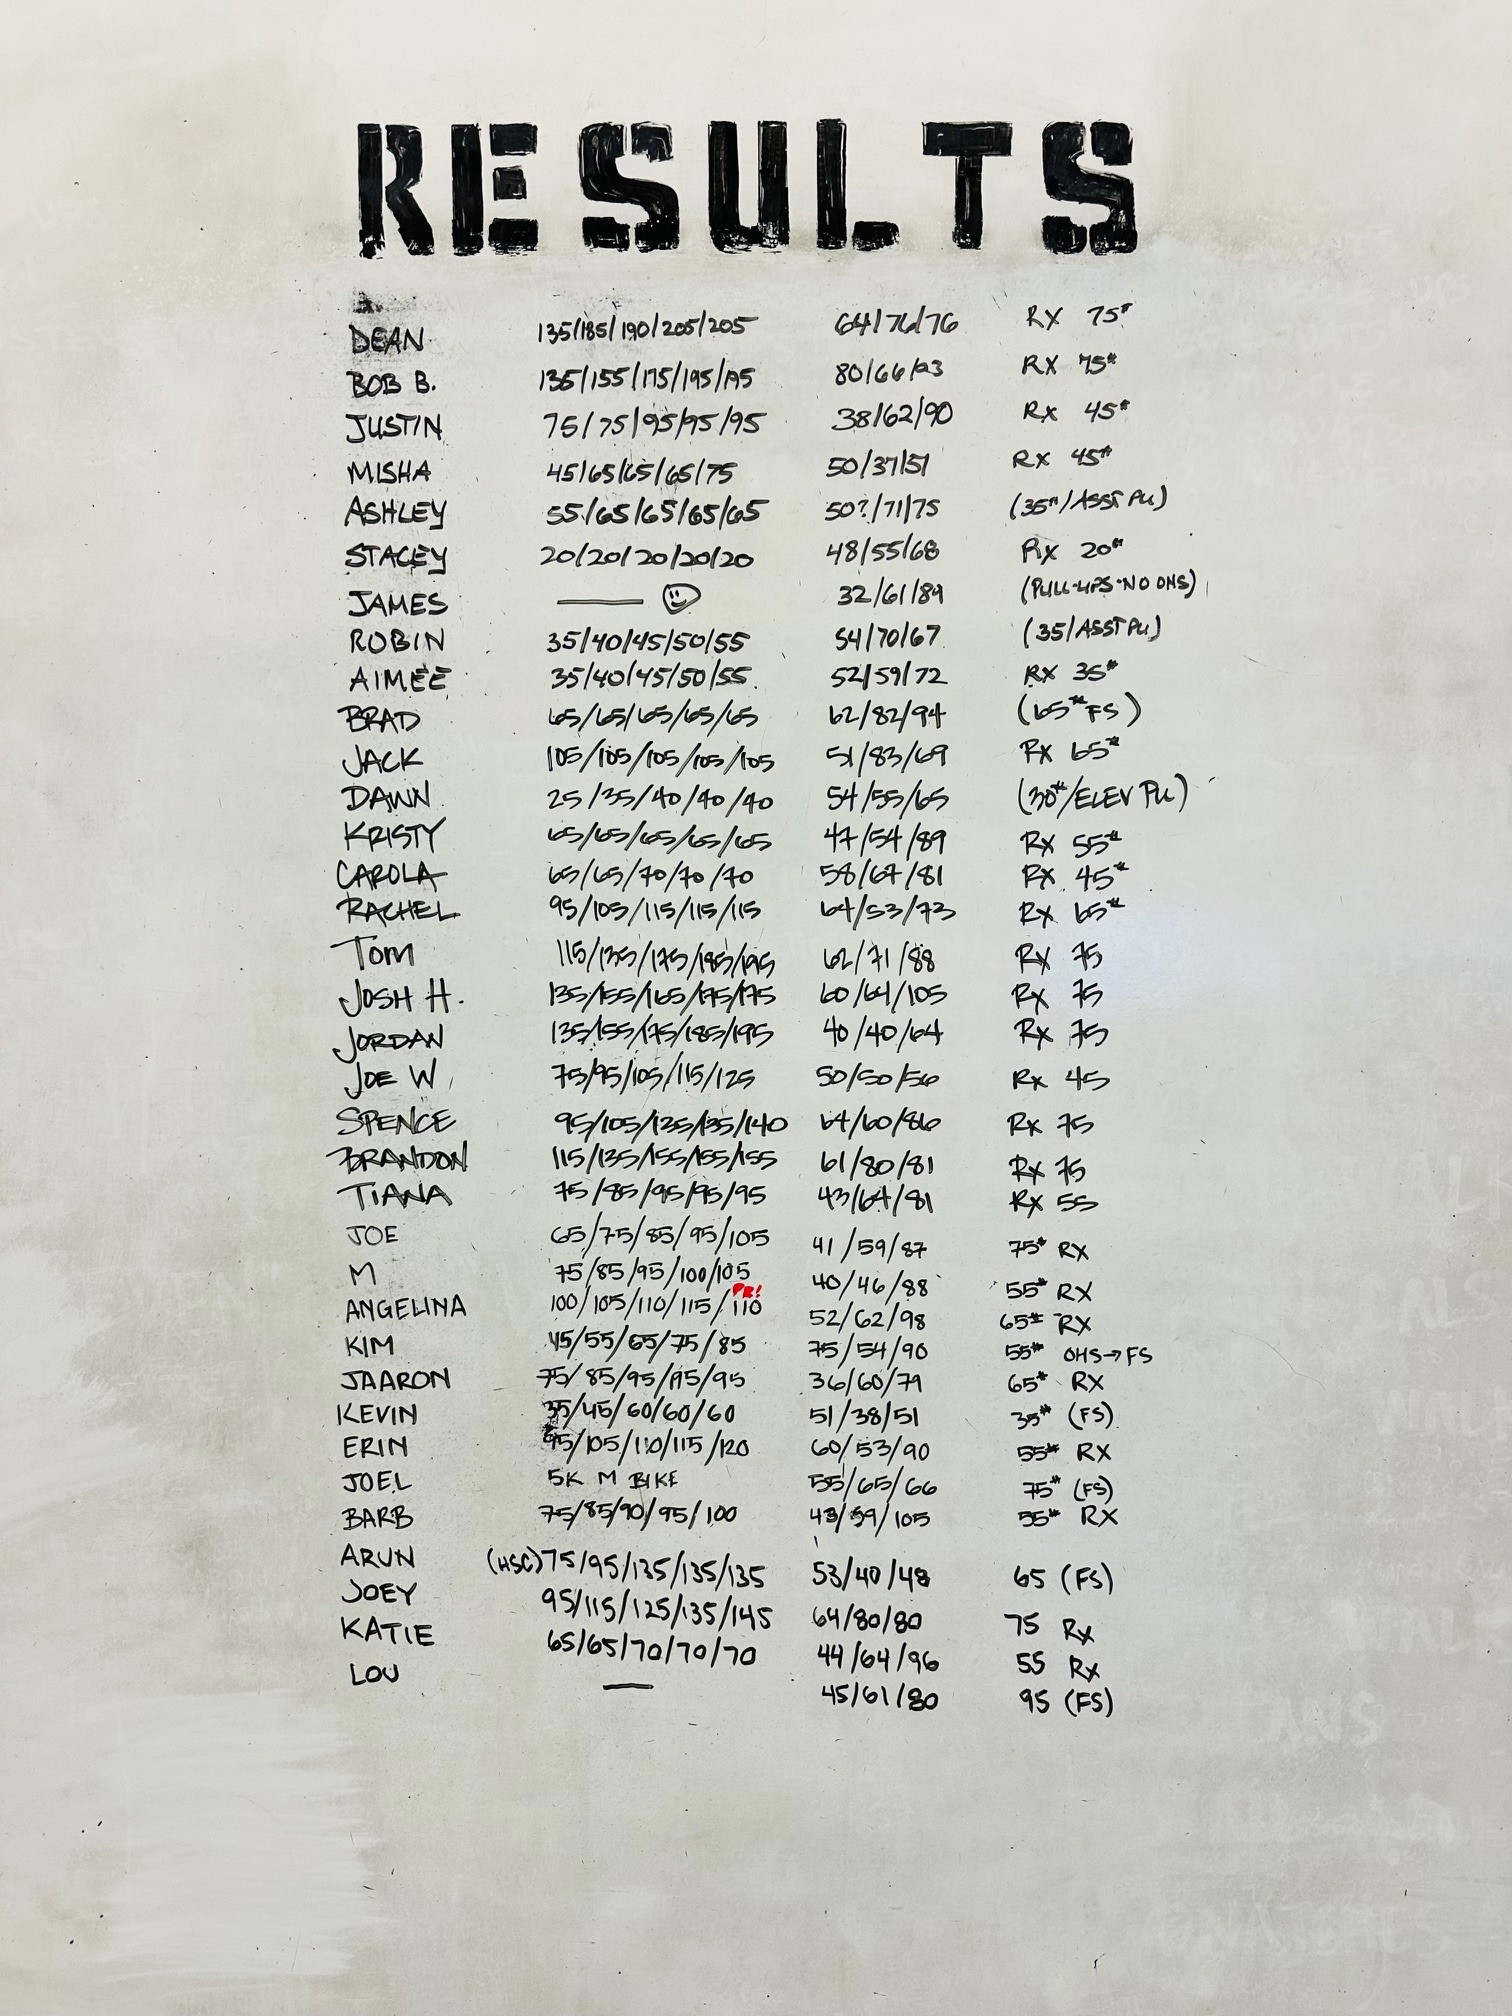 RESULTS
DEAN 135/185/190/205/205 64/76/76 RX 75#
BOB B. 135/155/175/195/195 80/66/93 RX 75#
JUSTIN 75/75/95/95/95 38/62/90 RX 45#
MISHA 45/65/65/65/75 50/37/51 RX 45#
ASHLEY 55/65/65/65/65 50?/71/75 (35#/ASST PU)
STACEY 20/20/20/20/20 48/55/68 RX 20#
JAMES — 32/61/89 (PULL-UPS-NO OHS)
ROBIN 35/40/45/50/55 54/70/67 (35/ASST PU)
AIMEE 35/40/45/50/55 52/59/72 RX 35#
BRAD 65/65/65/65/65 62/82/94 (65# FS)
JACK 105/105/105/105/105 51/83/69 RX 65#
DAWN 25/35/40/40/40 54/55/65 (30#/ELEV PU)
KRISTY 65/65/65/65/65 47/54/89 RX 55#
CAROLA 65/65/70/70/70 58/67/81 RX 45#
RACHEL 95/105/115/115/115 64/53/73 RX 65#
TOM 115/135/175/185/195 62/71/88 RX 75
JOSH H. 135/155/165/175/175 60/64/105 RX 75
JORDAN 135/155/175/185/195 40/40/64 RX 75
JOE W. 75/95/105/115/125 50/50/56 RX 45
SPENCE 95/105/125/135/140 64/60/86 RX 75
BRANDON 115/135/155/155/155 61/80/81 RX 75
TIANA 75/85/95/95/95 43/64/81 RX 55
JOE 65/75/85/95/105 41/59/87 75# RX
M 75/85/95/100/105 40/46/88 55# RX
PR!
ANGELINA 100/105/110/115/110 52/62/98 65# RX
KIM 45/55/65/75/85 75/54/90 55# OHS→FS
JAARON 75/85/95/95/95 36/60/79 65# RX
KEVIN 35/45/60/60/60 51/38/51 35# (FS)
ERIN 95/105/110/115/120 60/53/90 55# RX
JOEL 5K M BIKE 55/65/66 75# (FS)
BARB 75/85/90/95/100 43/59/105 55# RX
ARUN (HSC) 75/95/135/135/135 53/40/48 65 (FS)
JOEY 95/115/125/135/145 64/80/80 75 RX
KATIE 65/65/70/70/70 44/64/96 55 RX
LOU — 45/61/80 95 (FS)